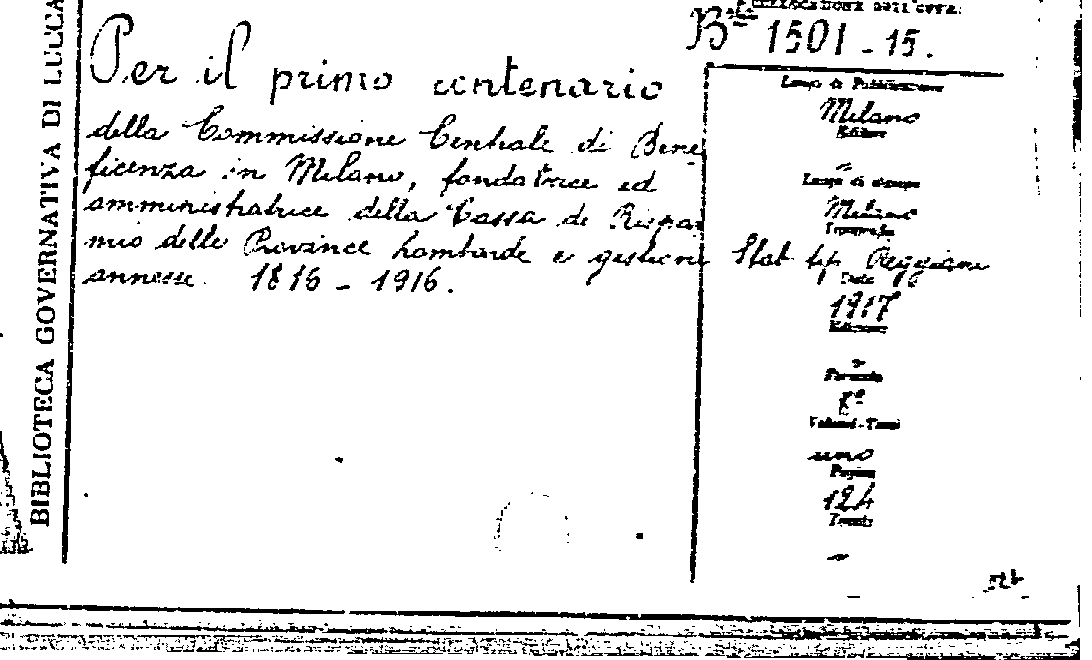 BIBLIOTECA GOVERNATIVA DI LUCCA
COLLOCAZIONE DELL'OPERA:
1501 - 15.
Per il primo centenario
della Commissione Centrale di Bene
ficenza in Milano, fondatrice ed
amministratrice della Cassa di Rispar
mio delle Province Lombarde e gestioni
annesse. 1816 - 1916.
Luogo di Pubblicazione
Milano
Editore
Luogo di stampa
Milano
Tipografia
Stab. tip. Reggiani
Data
1917
Edizione
Formato
8º
Volumi - Tomi
uno
Pagine
124
Tavole